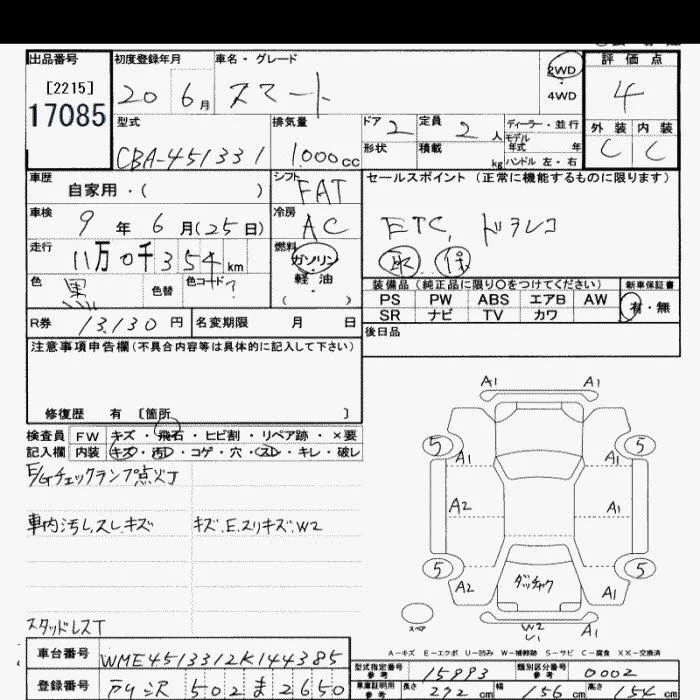 出品番号 初度登録年月 車名・グレード 評価点
[2215] 20 6月 スマート 2WD 4
17085 4WD
型式 排気量 ドア 2 定員 2人 ディーラー・並行 外装 内装
CBA-451331 1.000cc 形状 積載 kg モデル年式 年 C C
ハンドル 左・右
車歴 シフト セールスポイント (正常に機能するものに限ります)
自家用・( ) FAT
車検 冷房 ETC, ドラレコ
9年6月(25日) AC 取 保
走行 燃料
11万0千354km ガソリン
色 黒 色替 色コード ? 軽油 装備品(純正品に限り○をつけてください) 新車保証書
( ) PS PW ABS エアB AW 有・無
R券 13,130円 名変期限 月 日 SR ナビ TV カワ
注意事項申告欄(不具合内容等は具体的に記入して下さい) 後日品
修復歴 有 [箇所 ]
検査員 FW キズ・飛石・ヒビ割・リペア跡・×要
記入欄 内装 キズ・汚・コゲ・穴・スレ・キレ・破レ
E/Gチェックランプ点灯
車内汚し,スレ,キズ キズ.E.スリキズ.W2
スタッドレスT
A1 A1
5 5
A1 A1
A2 A1
5 5
A2 ダッチャク A1
スペ
A1 W2 A1
U1
A-キズ E-エクボ U-凹み W-補修跡 S-サビ C-腐食 XX-交換済
車台番号 WME4513312K144385
型式指定番号 参考 15993 類別区分番号 参考 0002
登録番号 502 ま 2650
車庫証明用 参考 長さ 272cm 幅 156cm 高さ 154cm